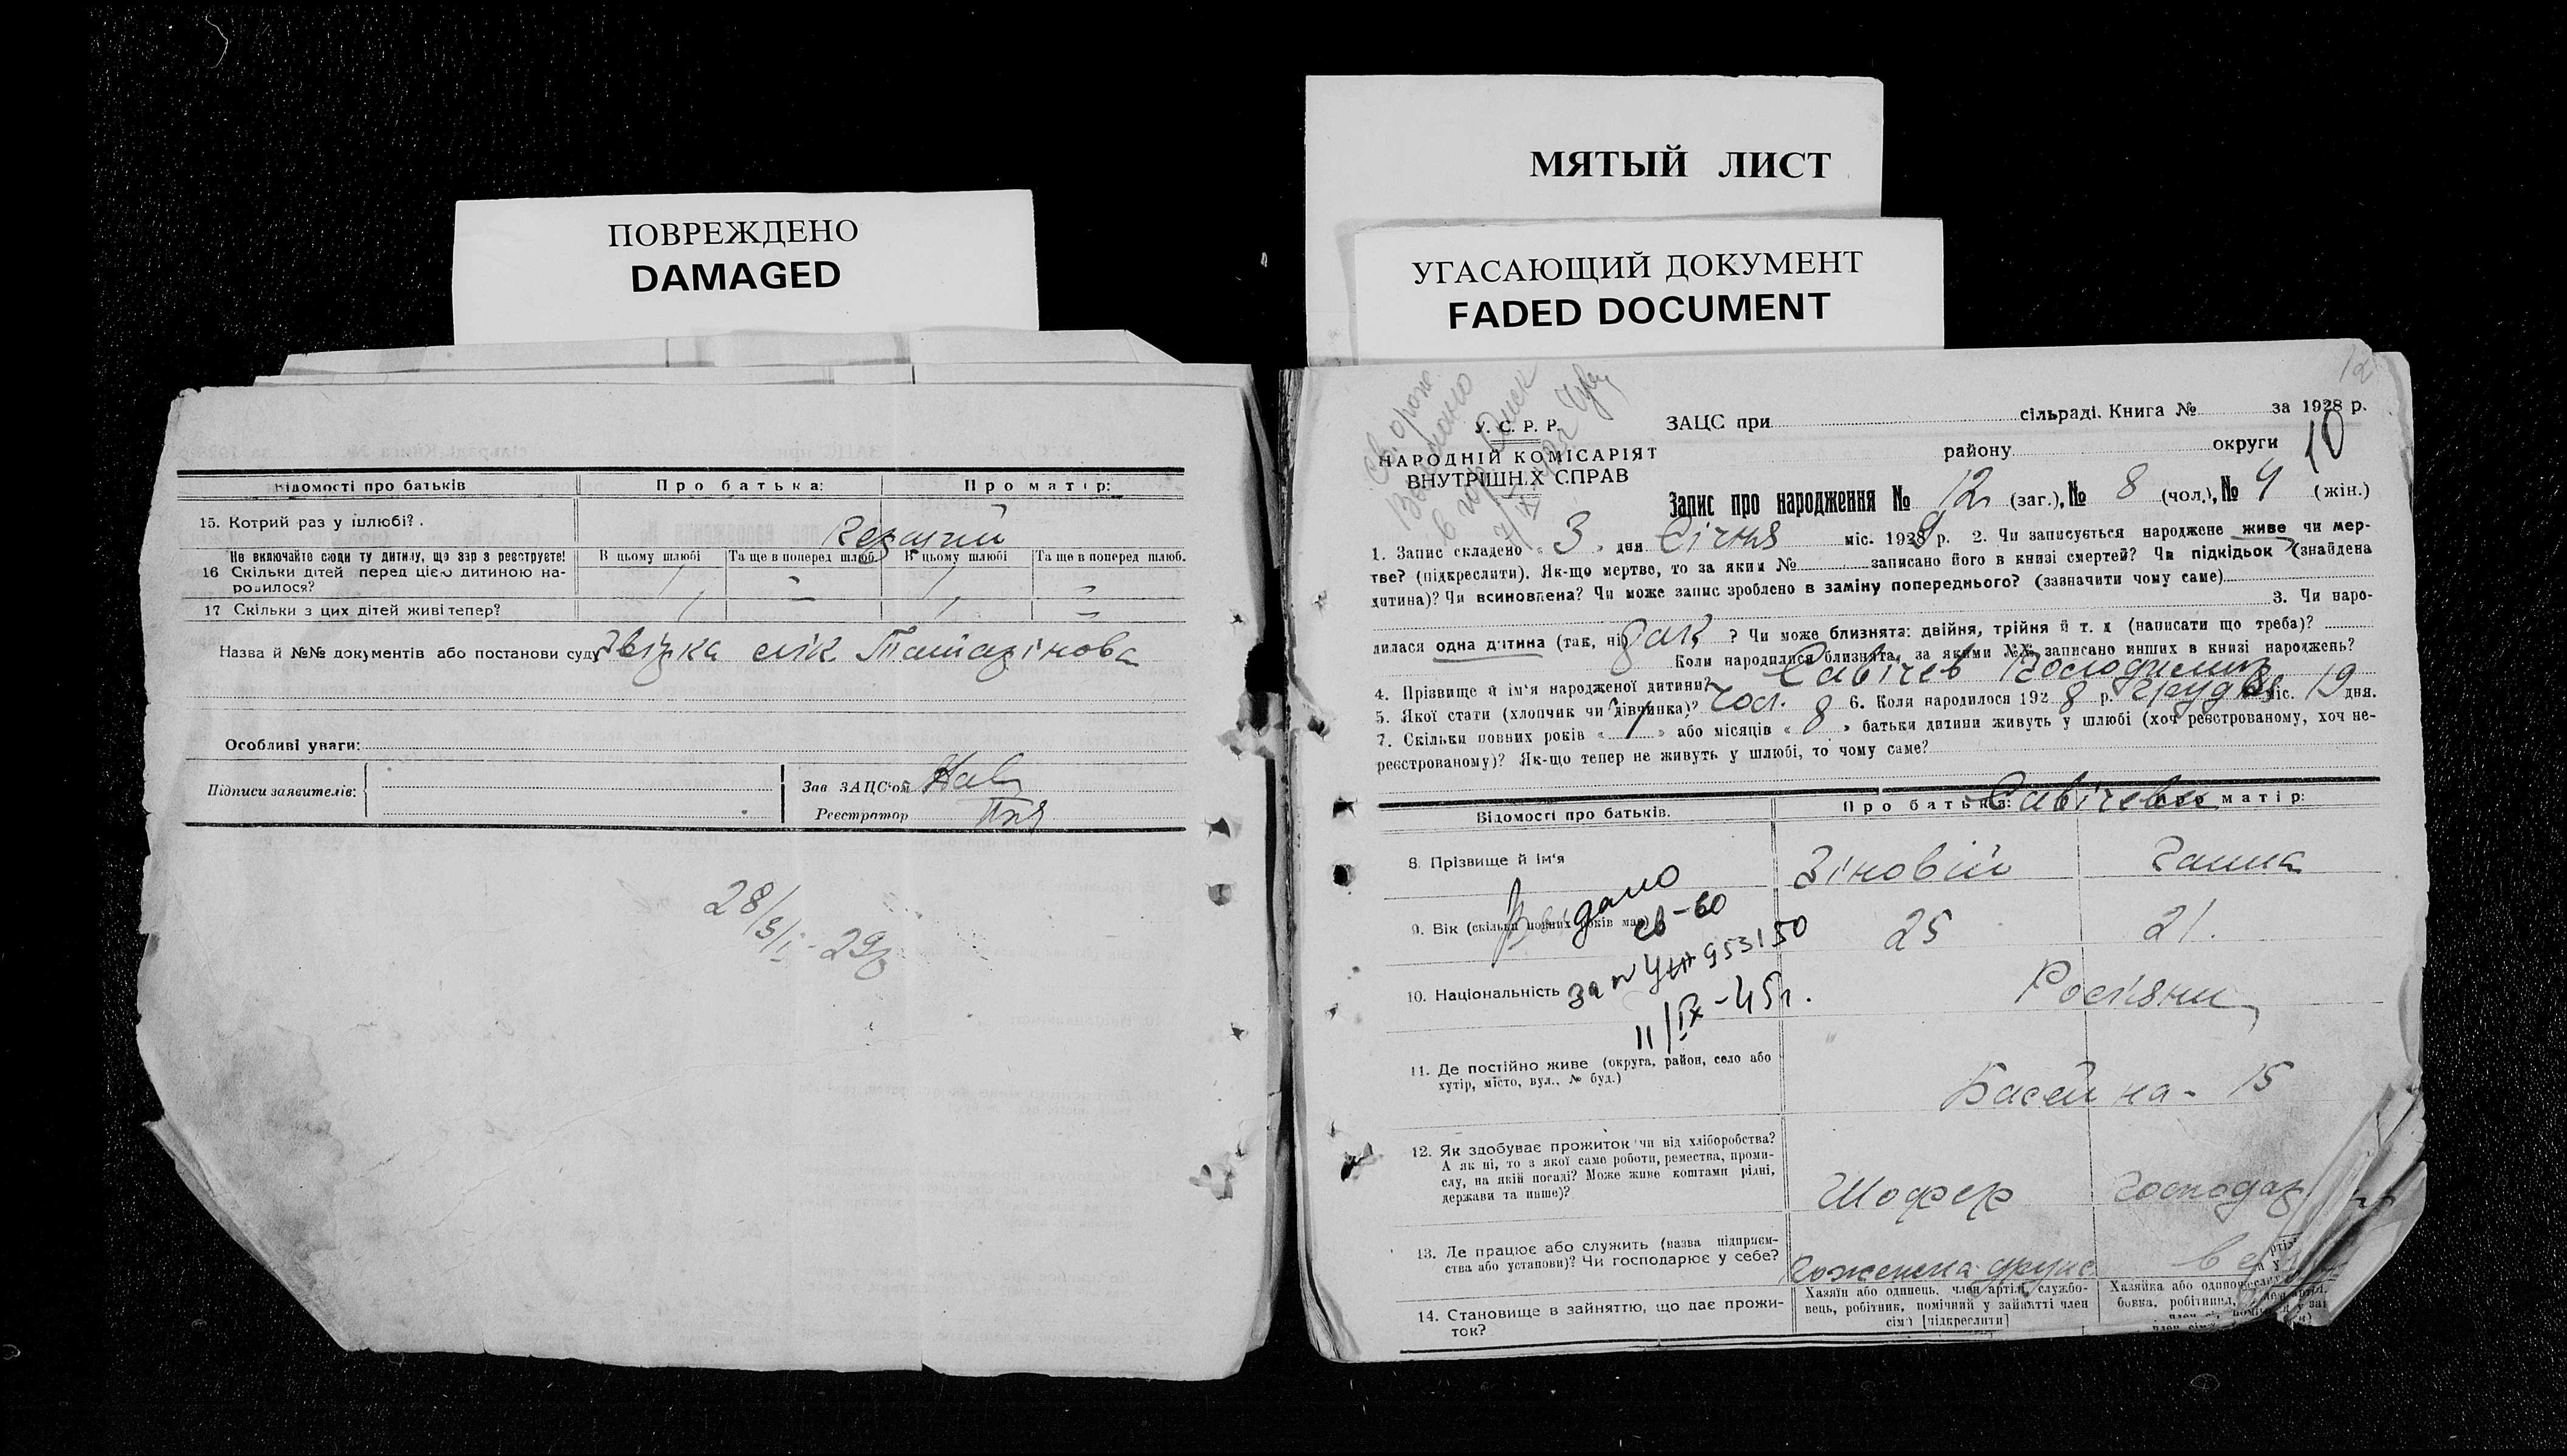 ПОВРЕЖДЕНО
DAMAGED
МЯТЫЙ ЛИСТ
УГАСАЮЩИЙ ДОКУМЕНТ
FADED DOCUMENT
Відомості про батьків
Про батька:
Про матір:
15. Котрий раз у шлюбі?.
Не включайте сюди ту дитину, що зараз реєструєте!
В цьому шлюбі
Та ще в поперед шлюб.
В цьому шлюбі
Та ще в поперед шлюб.
16 Скільки дітей перед цією дитиною на-
родилося? / - / -
17 Скільки з цих дітей живі тепер? / - / -
Назва й №№ документів або постанови суду Звірка слік.
Особливі уваги:
Підписи заявителів:
Зав ЗАЦС'ом
Реєстратор
12
У. С. Р. Р.
НАРОДНІЙ КОМІСАРІЯТ
ВНУТРІШНІХ СПРАВ
ЗАЦС при сільраді. Книга № за 1928 р.
району округи
10
Запис про народження № 12 (заг.), № 8 (чол.), № 4 (жін.)
1. Запис складено « 3 » дня Січня міс. 1929 р. 2. Чи записується народжене живе чи мер-
тве? (підкреслити). Як-що мертве, то за яким № записано його в книзі смертей? Чи підкідьок (знайдена
дитина)? Чи всиновлена? Чи може запис зроблено в заміну попереднього? (зазначити чому саме)
3. Чи наро-
дилася одна дитина (так, ні) так ? Чи може близнята: двійня, трійня й т. д (написати що треба)?
Коли народилися близнята, за якими №№ записано инших в книзі народжень?
4. Прізвище й ім'я народженої дитини? Савічев
5. Якої стати (хлопчик чи дівчинка)? чол. 6. Коли народилося 1928 р. Грудня міс. 19 дня.
7. Скільки повних років « 1 » або місяців « 8 » батьки дитини живуть у шлюбі (хоч реєстрованому, хоч не-
реєстрованому)? Як-що тепер не живуть у шлюбі, то чому саме?
Відомості про батьків.
Про батька:
Про матір:
Савічеви
8. Прізвище й ім'я Зіновій Ганна
9. Вік (скільки повних років має) 25 21.
Видано
св-во
за № 953150
11/IX-45 г.
10. Національність Росіяни
11. Де постійно живе (округа, район, село або
хутір, місто, вул., № буд.) Басейна - 15
12. Як здобуває прожиток чи від хліборобства?
А як ні, то з якої саме роботи, ремества, проми-
слу, на якій посаді? Може живе коштами рідні,
держави та инше)? Шофер Господар
13. Де працює або служить (назва підприєм-
ства або установи)? Чи господарює у себе?
14. Становище в зайняттю, що дає прожи-
ток?
Хазяїн або одинець, член артілі, службо-
вець, робітник, помічний у зайнятті член
сім'ї [підкреслити]